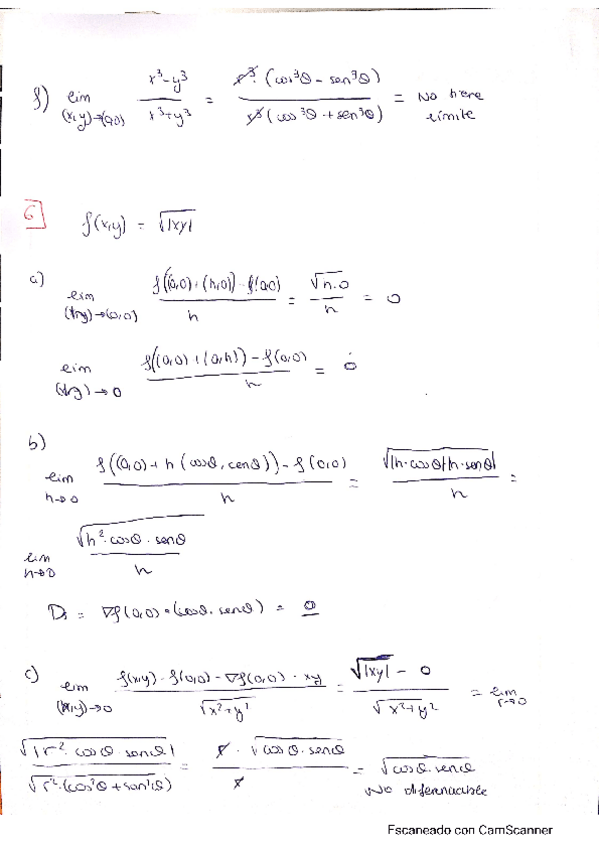 f) lim (x,y)→(0,0) x³-y³ / x³+y³ = r³·(cos³θ - sen³θ) / r³(cos³θ + sen³θ) = No tiene límite
6 f(x,y) = √|xy|
a) lim (x,y)→(0,0) f((0,0)+(h,0)) - f(0,0) / h = √h·0 / h = 0
lim (x,y)→0 f((0,0)+(0,h)) - f(0,0) / h = 0
b)
lim h→0 f((0,0)+h(cosθ, senθ)) - f(0,0) / h = √|h·cosθ|h·senθ| / h =
lim h→0 √h²·cosθ·senθ / h
D = ∇f(0,0)·(cosθ, senθ) = 0
c) lim (x,y)→0 f(x,y) - f(0,0) - ∇f(0,0)·xy / √x²+y² = √|xy| - 0 / √x²+y² = lim r→0
√|r²·cosθ·senθ| / √r²·(cos²θ+sen²θ) = r·√cosθ·senθ / r = √cosθ·senθ
No diferenciable
Escaneado con CamScanner